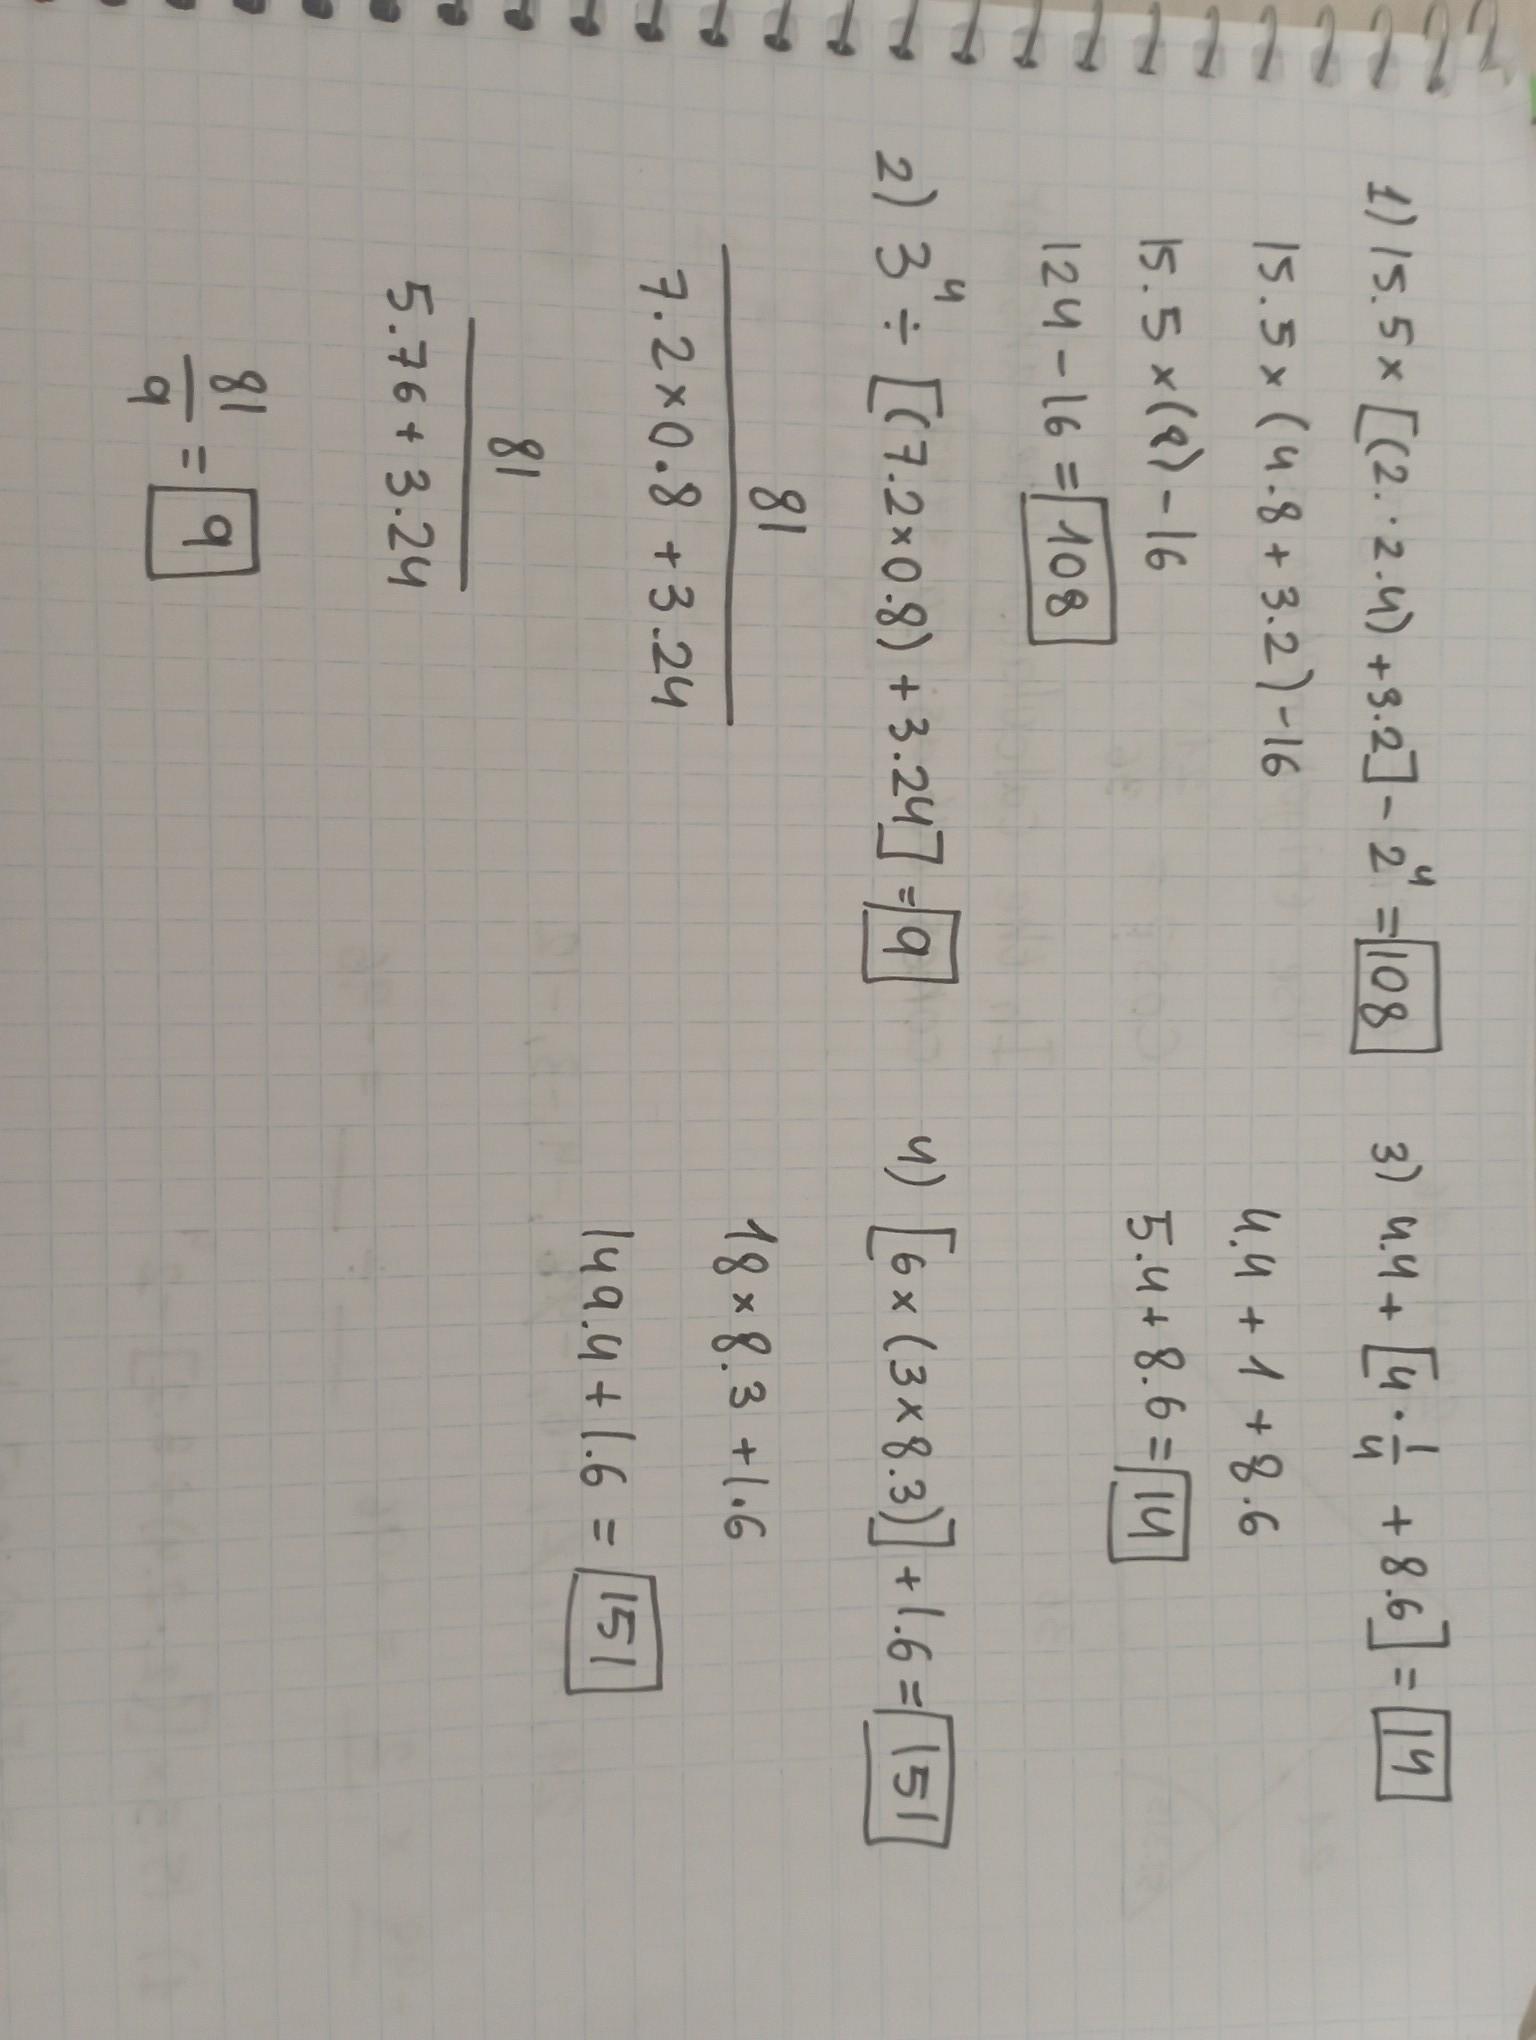 1) 15.5 × [(2. · 2.4) + 3.2] - 2⁴ = 108
15.5 × (4.8 + 3.2) - 16
15.5 × (8) - 16
124 - 16 = 108
2) 3⁴ ÷ [(7.2 × 0.8) + 3.24] = 9
81
7.2 × 0.8 + 3.24
81
5.76 + 3.24
81
9 = 9
3) 4.4 + [4 · 1/4 + 8.6] = 14
4.4 + 1 + 8.6
5.4 + 8.6 = 14
4) [6 × (3 × 8.3)] + 1.6 = 151
18 × 8.3 + 1.6
149.4 + 1.6 = 151